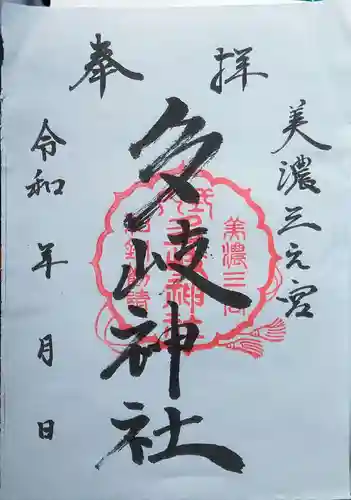 奉拝
美濃三元宮
多岐神社
美濃三宮
令和 年 月 日